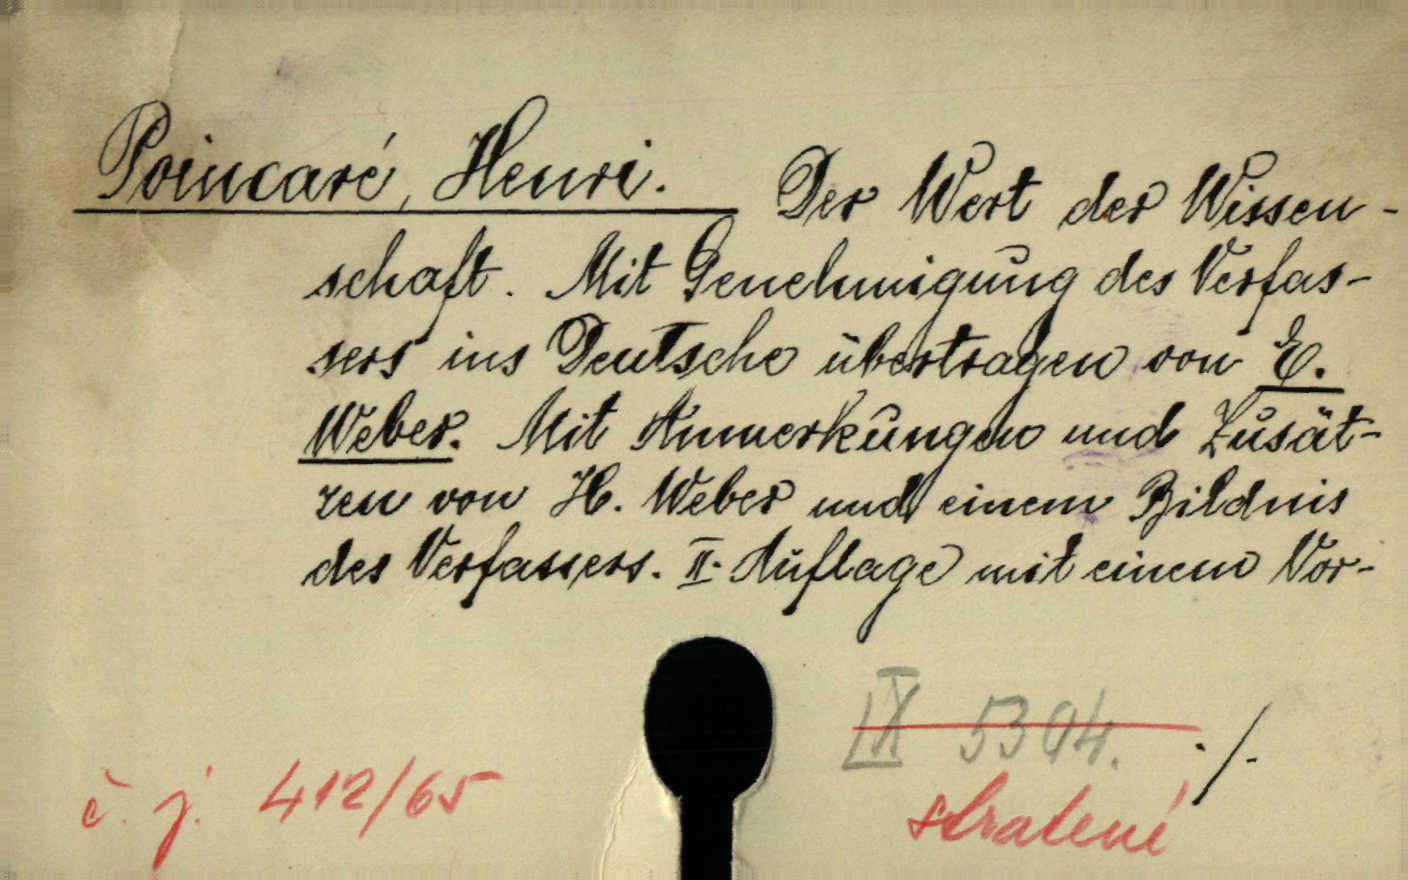 Poincaré, Henri. Der Wert der Wissen-
schaft. Mit Genehmigung des Verfas-
sers ins Deutsche übertragen von E.
Weber. Mit Anmerkungen und Zusät-
zen von H. Weber und einem Bildnis
des Verfassers. II. Auflage mit einem Vor-
IX 5394. ./.
č. j. 412/65
stratené